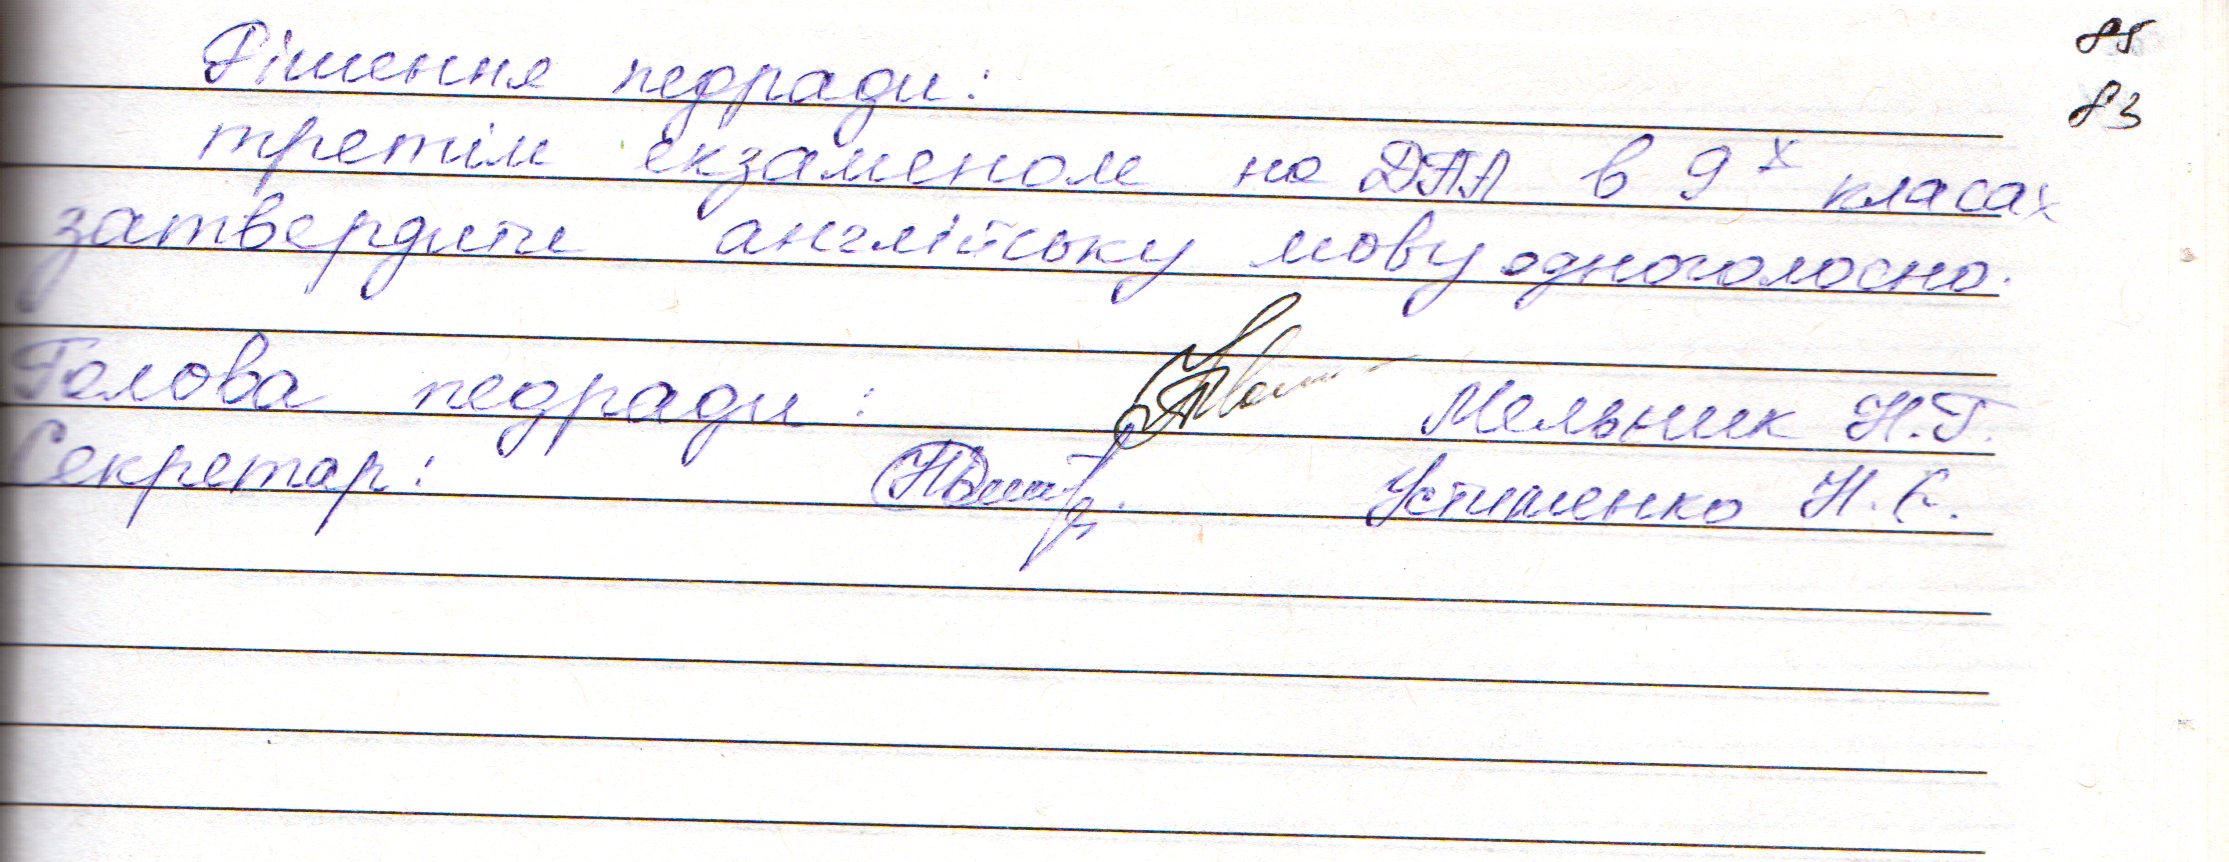 85
83
Рішення педради:
третім екзаменом на ДПА в 9х класах
затвердити англійську мову одноголосно.
Голова педради: Мельник Н.Г.
Секретар: Устименко Н.Є.